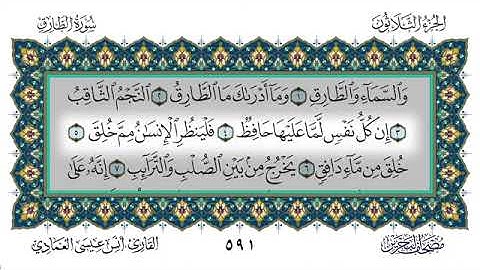 الجزء الثلاثون
سورة الطارق
وَالسَّمَآءِ وَالطَّارِقِ ١ وَمَآ أَدْرَىٰكَ مَا الطَّارِقُ ٢ النَّجْمُ الثَّاقِبُ
٣ إِن كُلُّ نَفْسٍ لَّمَّا عَلَيْهَا حَافِظٌ ٤ فَلْيَنظُرِ الْإِنسَٰنُ مِمَّ خُلِقَ ٥
خُلِقَ مِن مَّآءٍ دَافِقٍ ٦ يَخْرُجُ مِنۢ بَيْنِ الصُّلْبِ وَالتَّرَآئِبِ ٧ إِنَّهُۥ عَلَىٰ
٥٩١
القارئ أنس عيسى العمادي